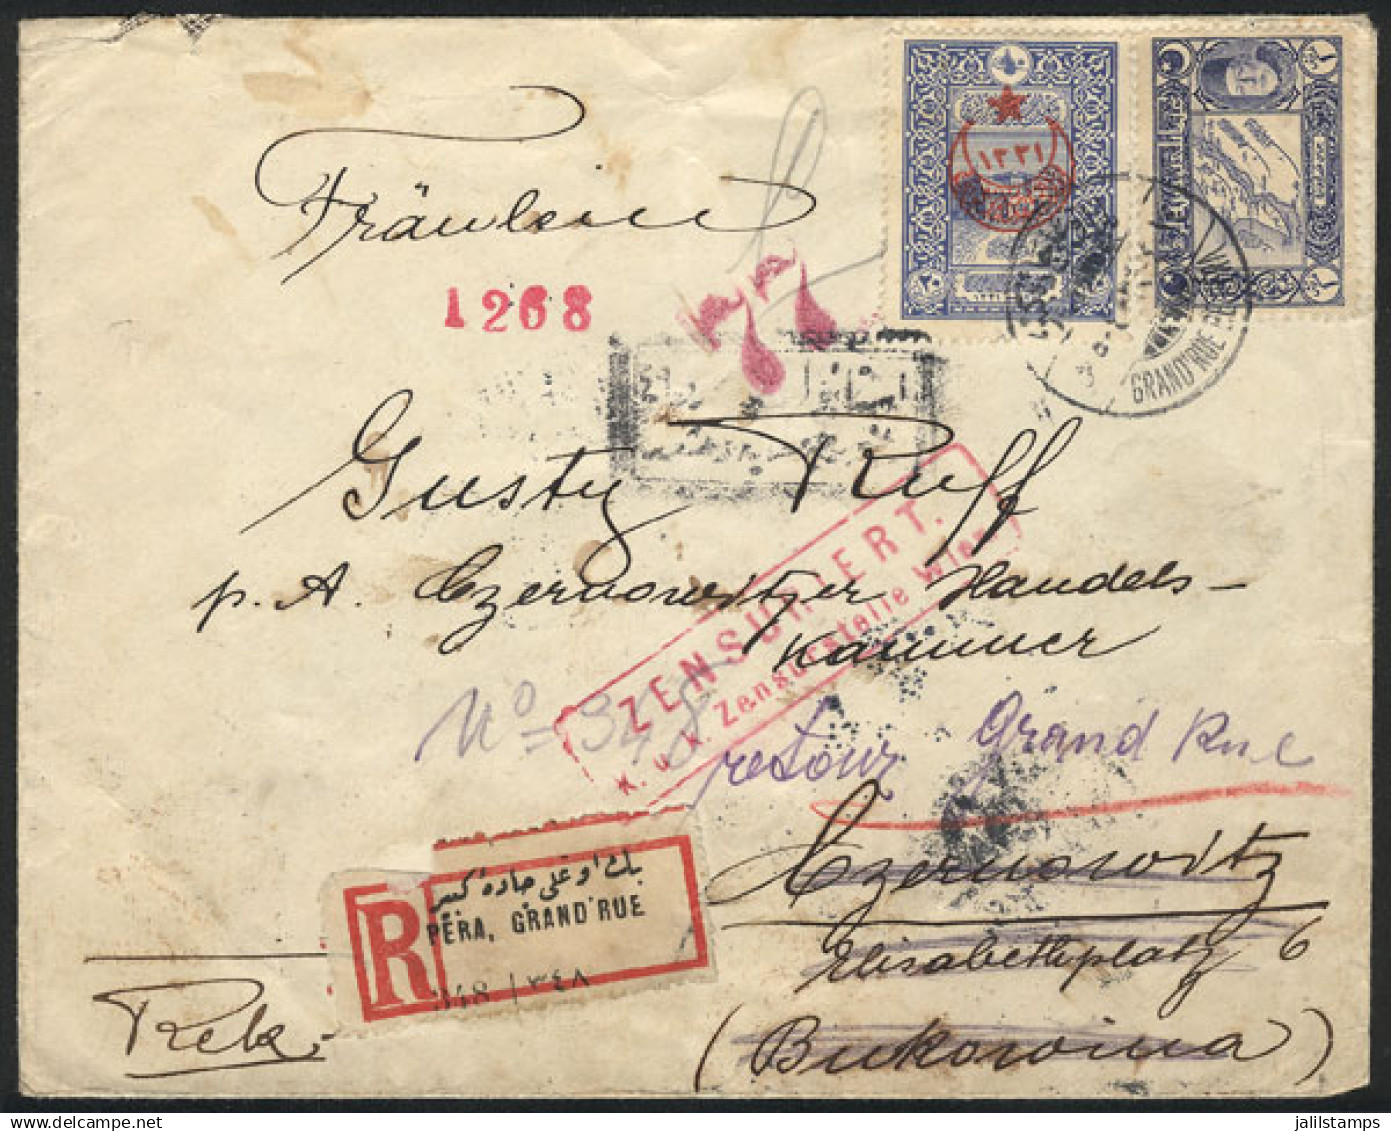 Fräulein
1268
١٣٣١
GRAND'RUE
Gusty Ruff
p. A. Czernowitzer Handels-
kammer
ZENSURIERT.
K. u. k. Zensurstelle Wien
No 348
retour Grand Rue
بك اوغلى جادۀ كبير
R
PERA, GRAND'RUE
348 / ٣٤٨
Czernowitz
Elisabethplatz 6
Rek.
(Bukowina)
jalilstamps